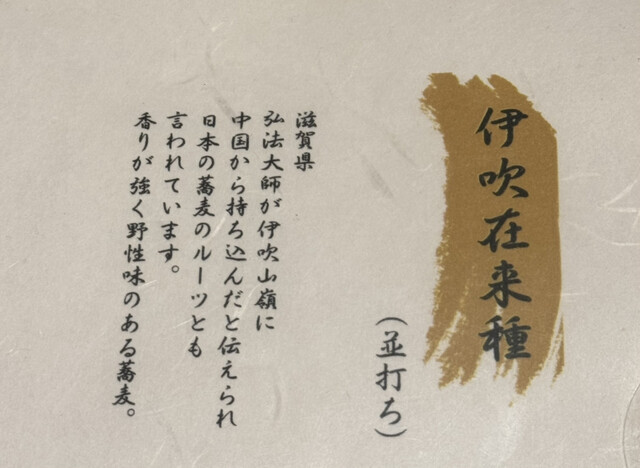 伊吹在来種
(並打ち)
滋賀県
弘法大師が伊吹山嶺に
中国から持ち込んだと伝えられ
日本の蕎麦のルーツとも
言われています。
香りが強く野性味のある蕎麦。